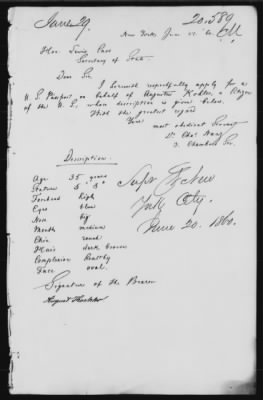 June 29.
20589
New York, June 20. 60
Hon. Lewis Cass
Secretary of State
Dear Sir
I herewith respectfully apply for a
U. S. Passport, on behalf of Augustus Kohler, a Citizen
of the U. S., whose description is given below.
With the greatest regard
Your
most obedient Servant
Dr Chas
3. Chambers Str.
Description:
Age 35 years
Stature 5' 8"
Forehead high
Eyes blue
Nose big
Mouth medium
Chin round
Hair dark brown
Complexion healthy
Face oval.
New
York City.
June 20. 1860.
Signature of the Bearer
August